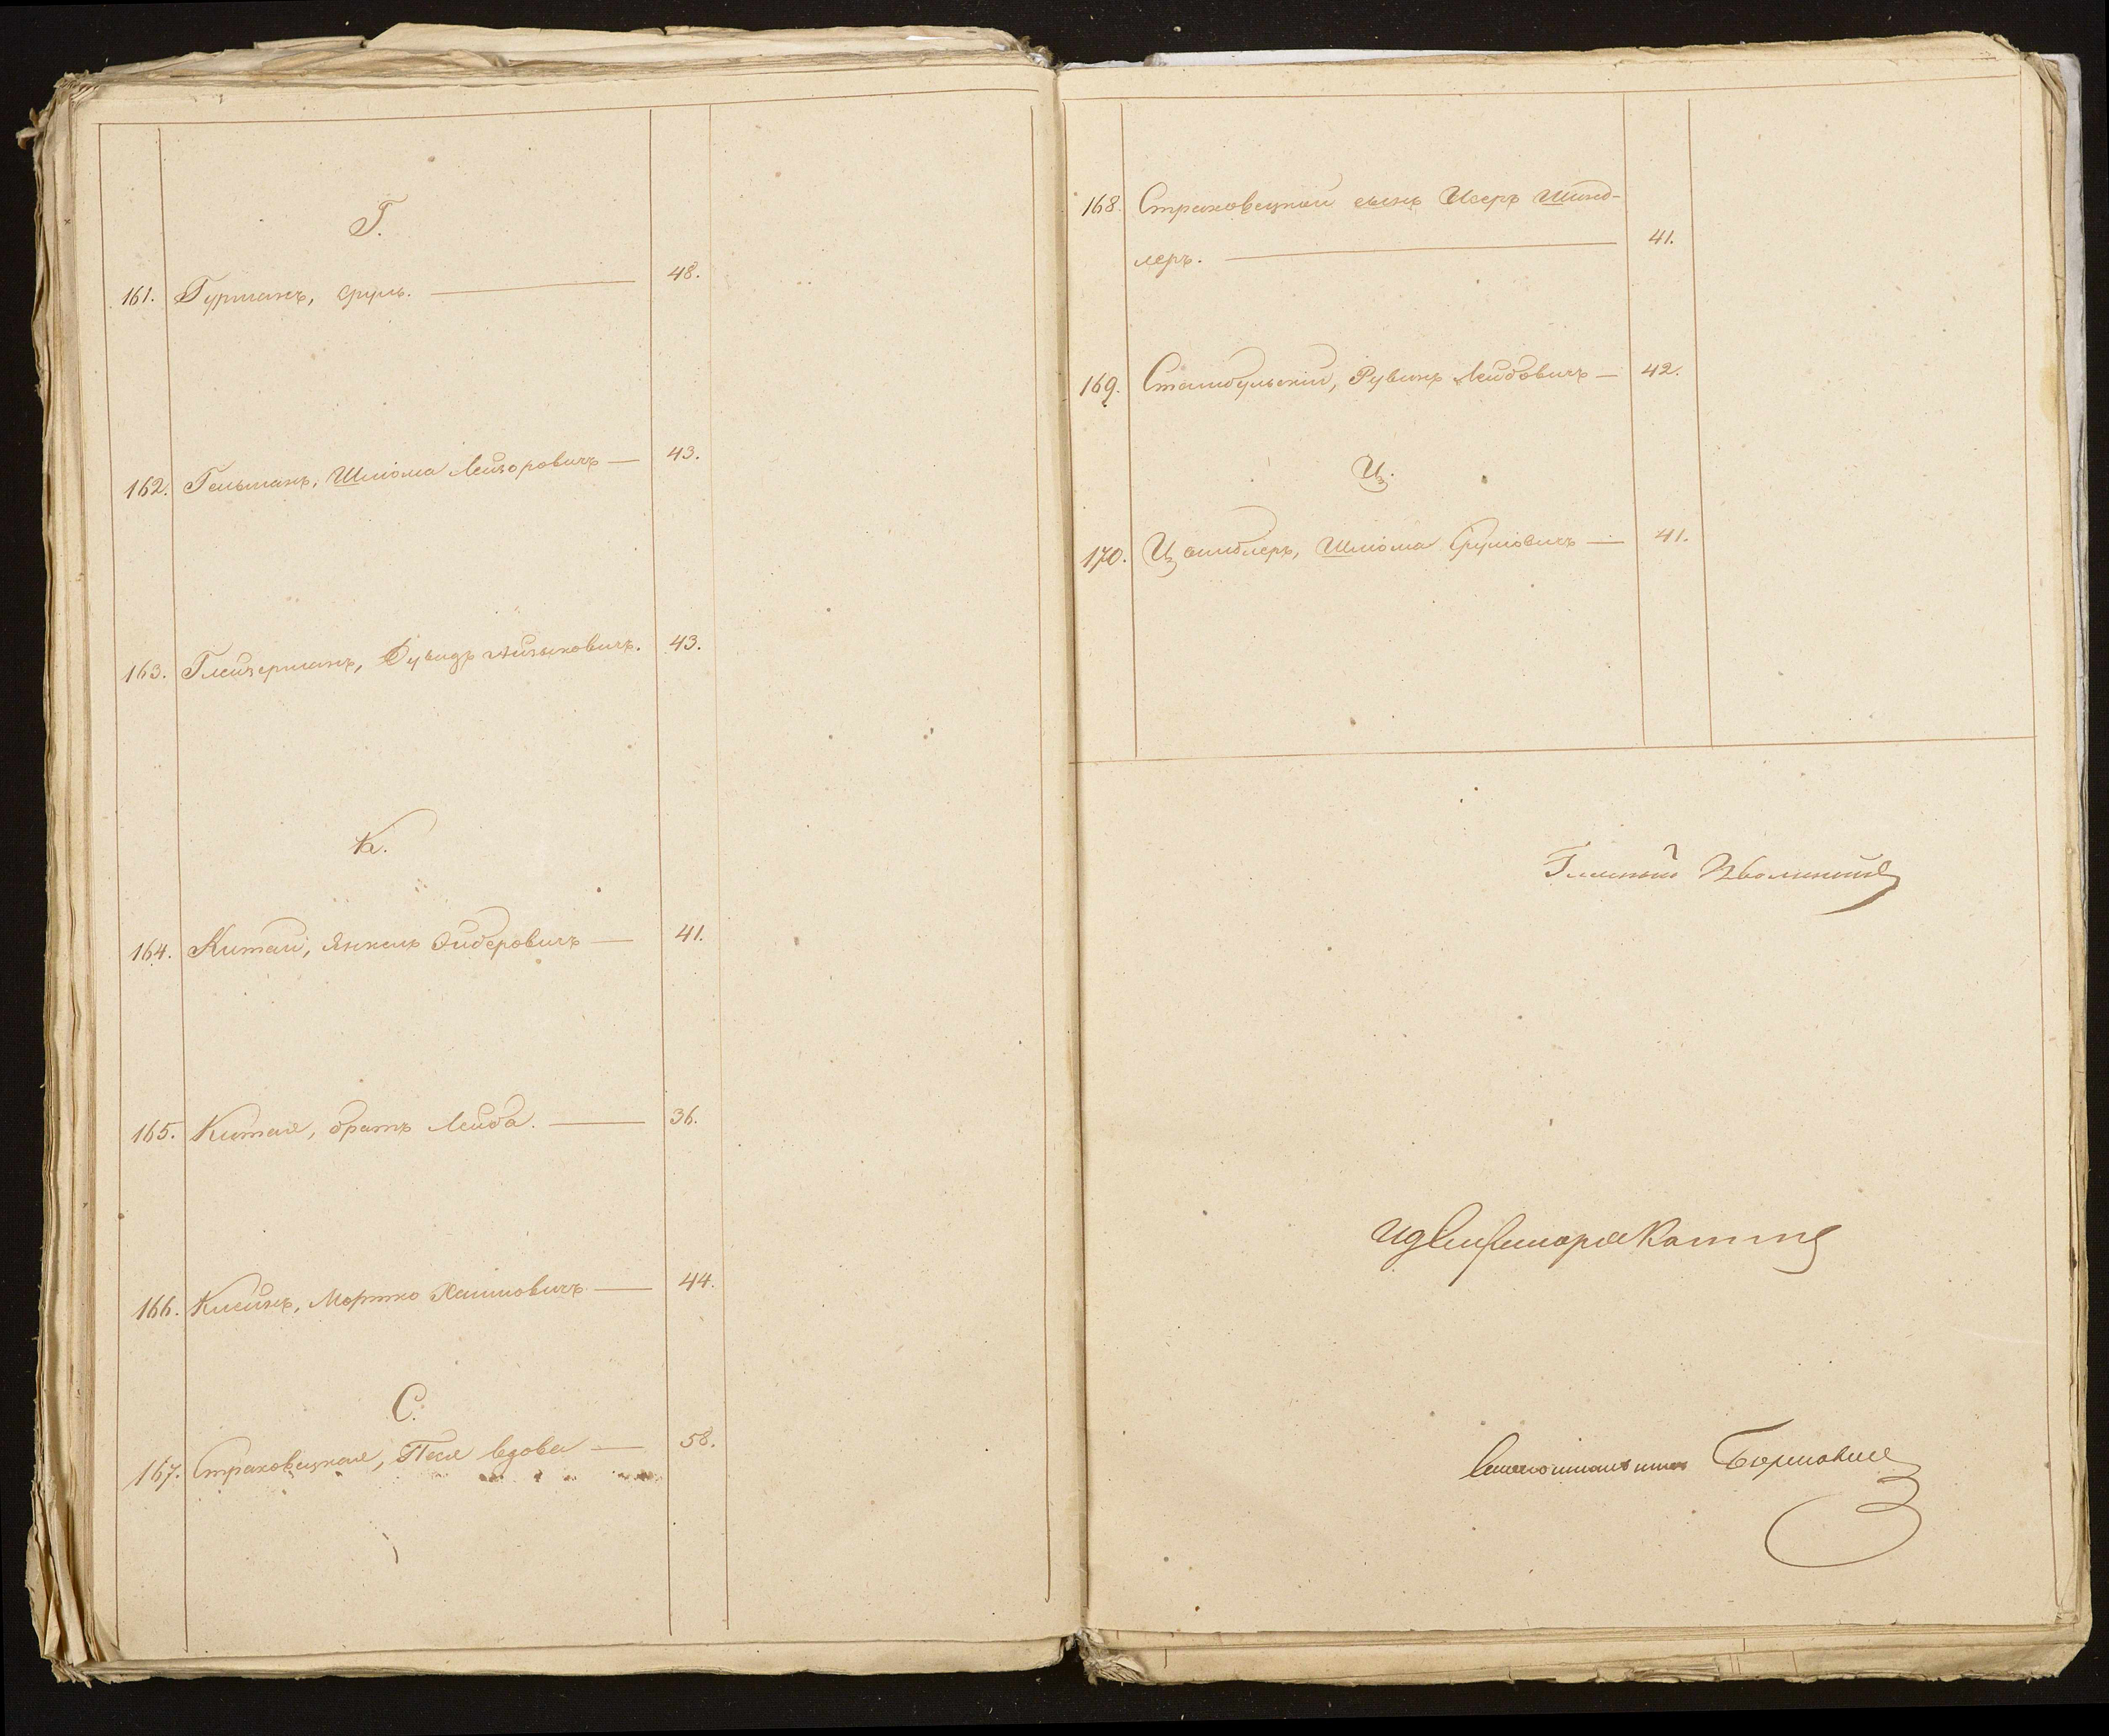 Г.
161. Гурманъ, Сруль. 48.
162. Гельманъ, Шлiома Лейзоровичъ 43.
163. Глейзерманъ, Дувидъ Айзыковичъ. 43.
К.
164. Китай, Янкель Ойзеровичъ 41.
165. Китая, братъ Лейба. 36.
166. Клейнъ, Мортко Хаимовичъ 44.
С.
167. Страковецкая, Песя вдова 58.
168. Страковецкой сынъ Исеръ Шинд-
леръ. 41.
169. Стамбульскiй, Рувинъ Лейбовичъ 42.
Ц.
170. Цвиблеръ, Шлiома Срулiовичъ 41.
Гласный